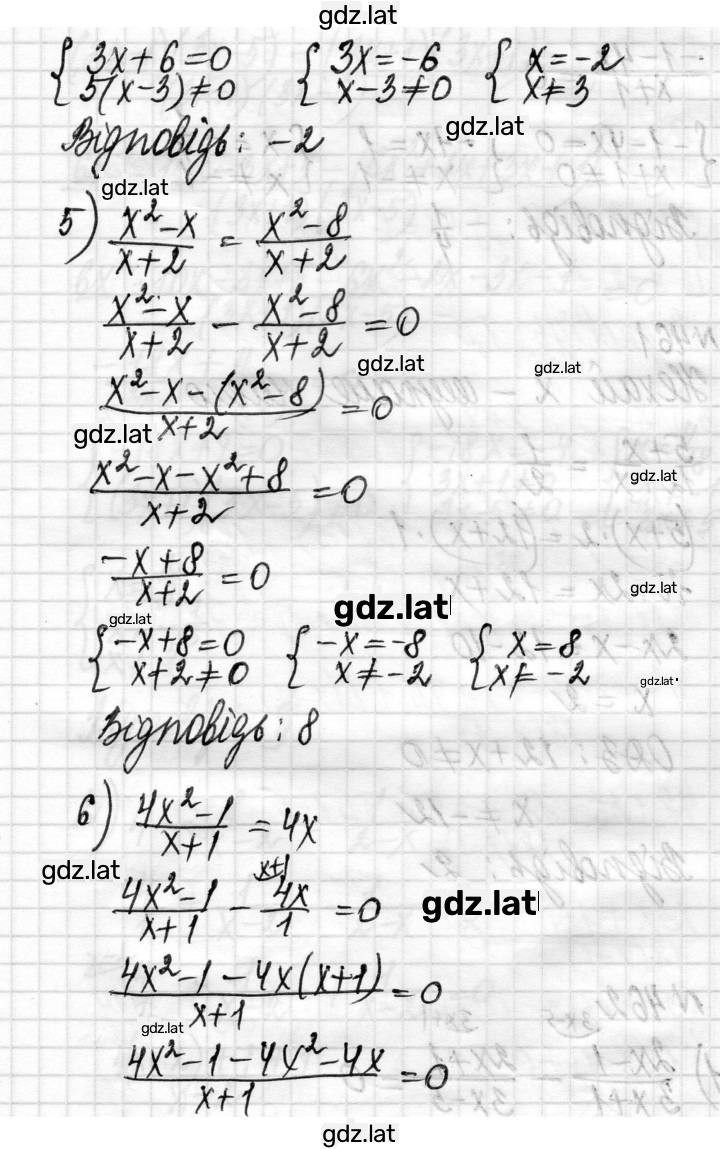 gdz.lat
{ 3x+6=0 { 3x=-6 { x=-2
5(x-3)≠0 x-3≠0 x≠3
gdz.lat
Відповідь: -2
gdz.lat
5) (x²-x)/(x+2) = (x²-8)/(x+2)
(x²-x)/(x+2) - (x²-8)/(x+2) = 0
gdz.lat
gdz.lat
(x²-x-(x²-8))/(x+2) = 0
gdz.lat
(x²-x-x²+8)/(x+2) = 0
gdz.lat
(-x+8)/(x+2) = 0
gdz.lat
gdz.lat
gdz.lat
{ -x+8=0 { -x=-8 { x=8
x+2≠0 x≠-2 x≠-2
gdz.lat
Відповідь: 8
6) (4x²-1)/(x+1) = 4x
gdz.lat
x+1
(4x²-1)/(x+1) - 4x/1 = 0
gdz.lat
(4x²-1-4x(x+1))/(x+1) = 0
gdz.lat
(4x²-1-4x²-4x)/(x+1) = 0
gdz.lat